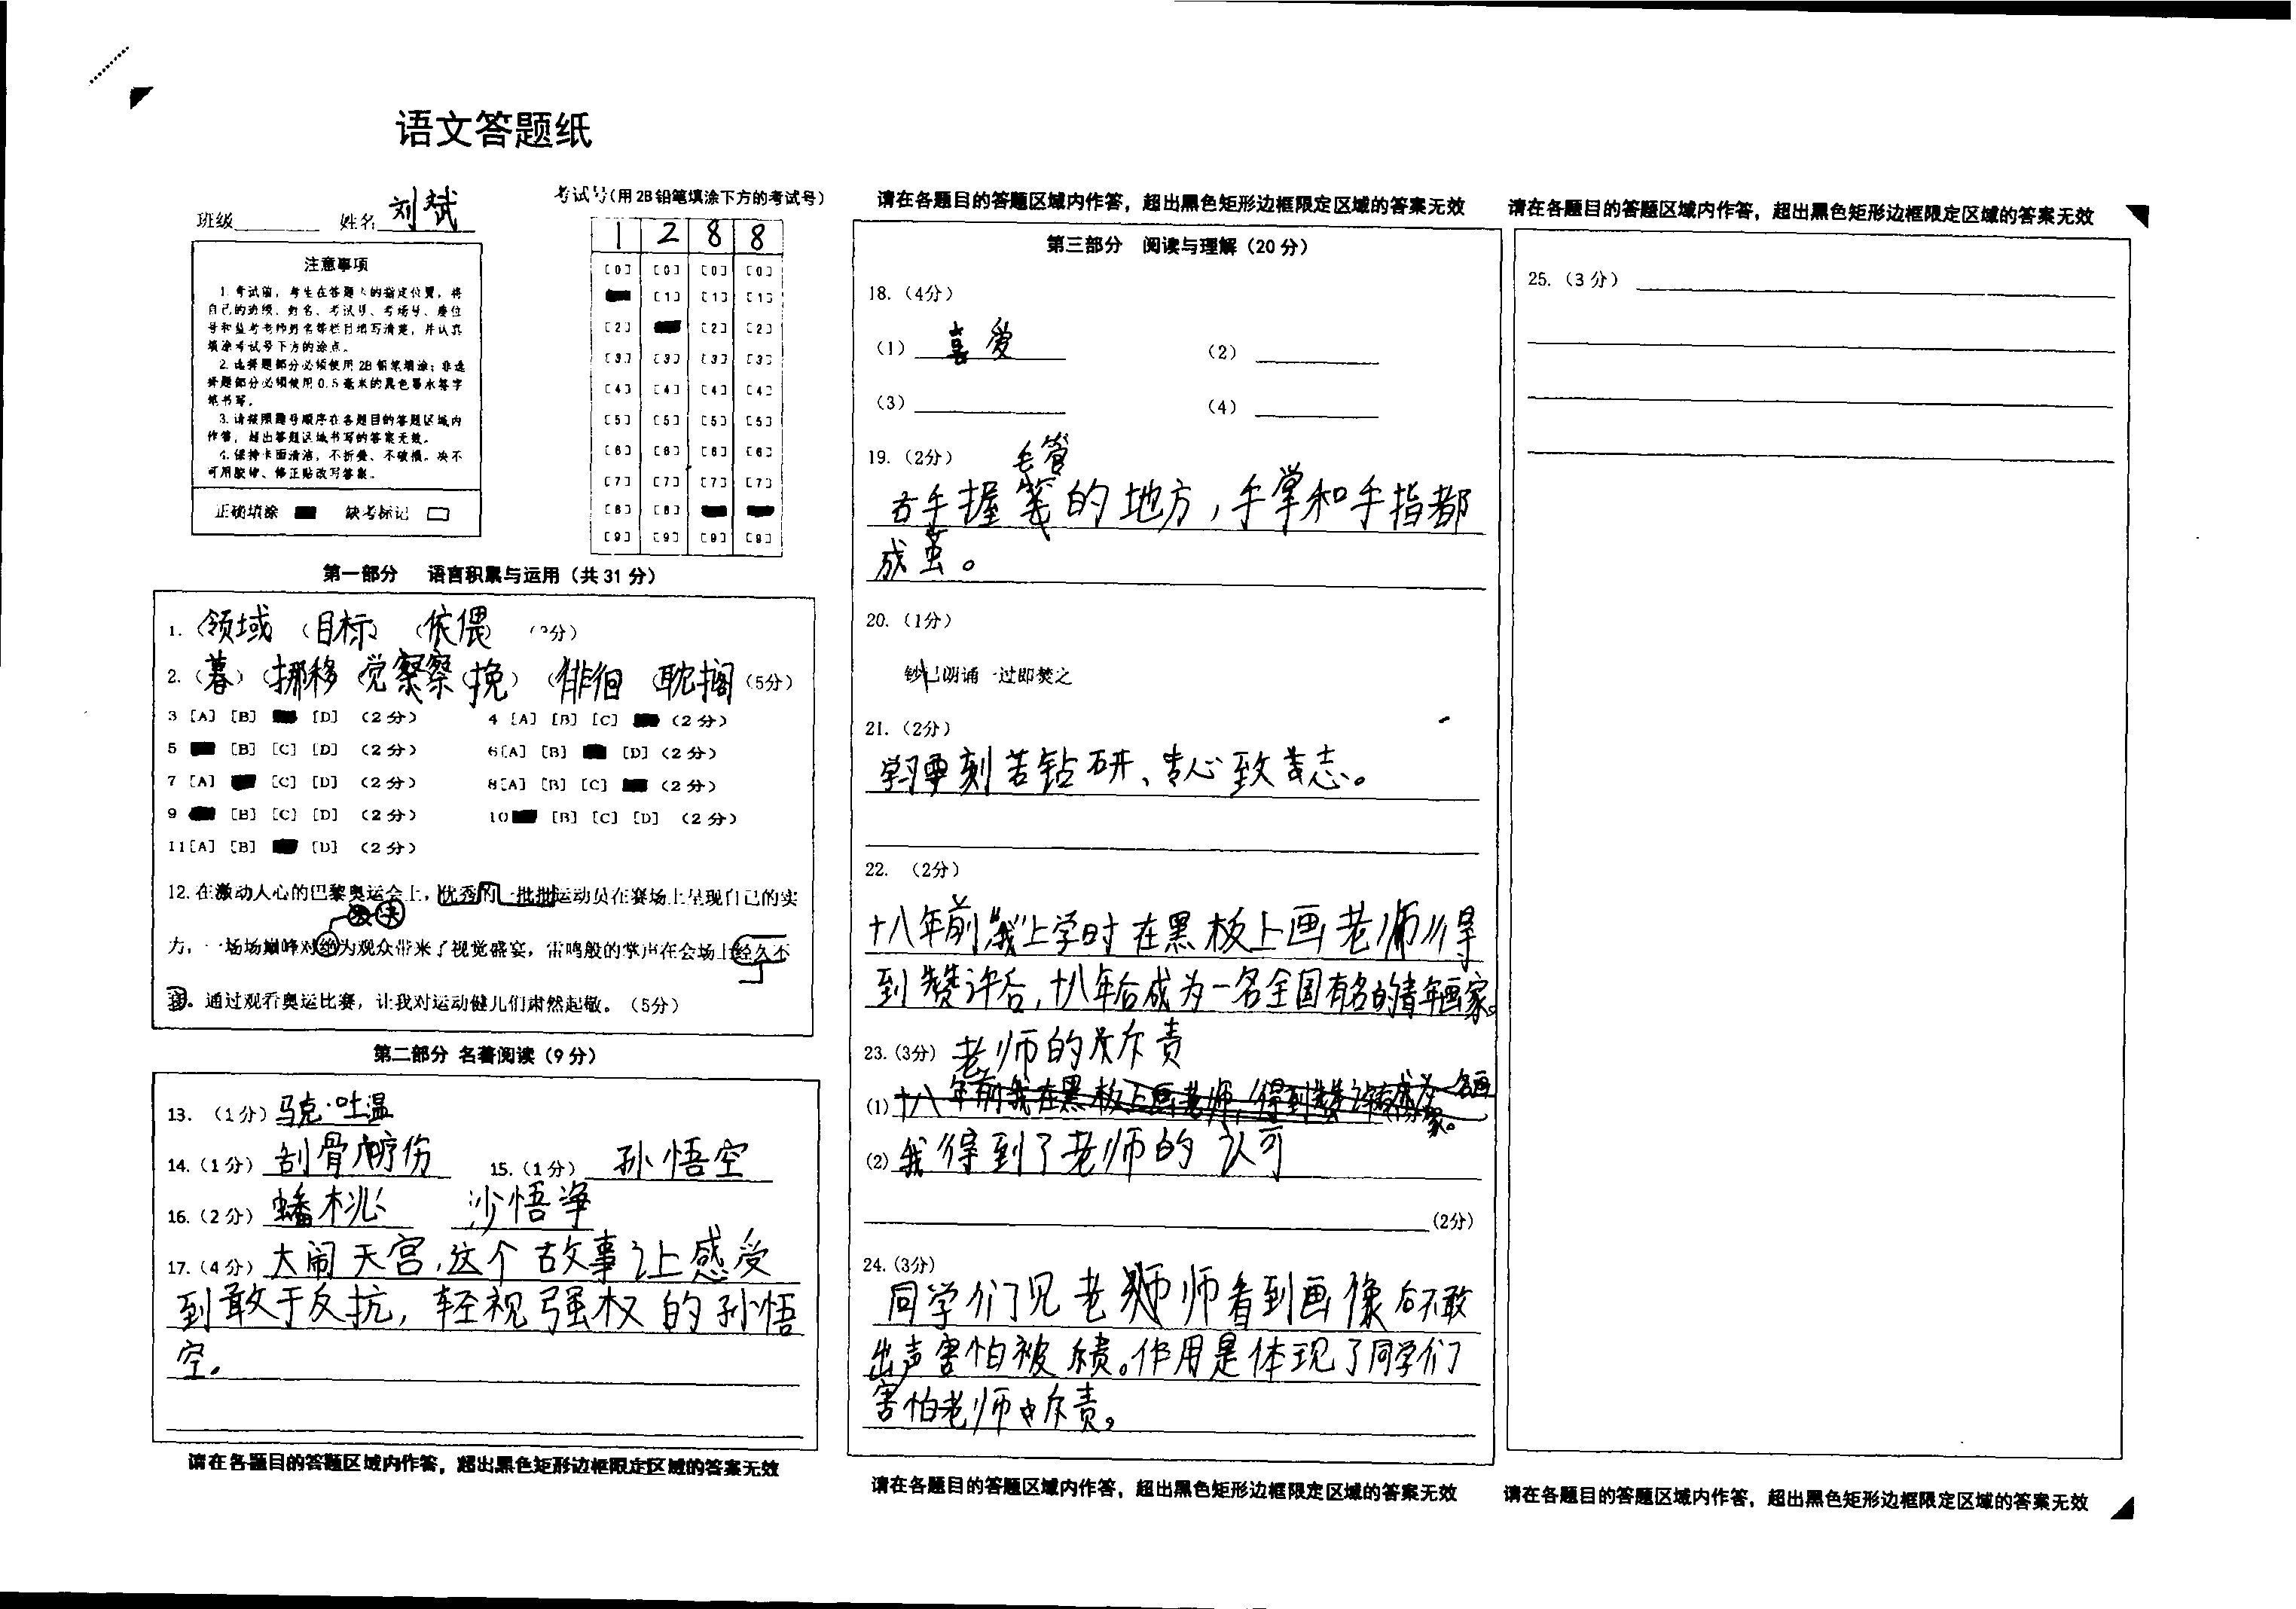 语文答题纸
班级 姓名 刘斌
考试号(用2B铅笔填涂下方的考试号)
1 2 8 8
[0] [0] [0] [0]
[1] [1] [1]
[2] [2] [2]
[3] [3] [3] [3]
[4] [4] [4] [4]
[5] [5] [5] [5]
[6] [6] [6] [6]
[7] [7] [7] [7]
[8] [8]
[9] [9] [9] [9]
注意事项
1.考试前,考生在答题 的指定位置,将
自己的班级、姓名、考试号、考场号、座位
号和监考老师姓名等栏目填写清楚,并认真
填涂考试号下方的涂点。
2.选择题部分必须使用2B铅笔填涂;非选
择题部分必须使用0.5毫米的黑色墨水签字
笔书写。
3.请按照题号顺序在各题目的答题区域内
作答,超出答题区域书写的答案无效。
4.保持卡面清洁,不折叠、不破损。决不
可用胶带、修正贴改写答案。
正确填涂 缺考标记
第一部分 语言积累与运用(共31分)
1.(领域 (目标) (依偎) (3分)
2.(暮) (挪移 觉察察 (挽) (徘徊 (耽搁 (5分)
3 [A] [B] [D] (2分) 4 [A] [B] [C] (2分)
5 [B] [C] [D] (2分) 6[A] [B] [D] (2分)
7 [A] [C] [D] (2分) 8[A] [B] [C] (2分)
9 [B] [C] [D] (2分) 10 [B] [C] [D] (2分)
11[A] [B] [D] (2分)
12.在激动人心的巴黎奥运会上,优秀的一批批运动员在赛场上呈现自己的实
力,一场场巅峰对绝为观众带来了视觉盛宴,雷鸣般的掌声在会场上经久不
。通过观看奥运比赛,让我对运动健儿们肃然起敬。(5分)
第二部分 名著阅读(9分)
13.(1分)马克·吐温
14.(1分)刮骨疗伤 15.(1分)孙悟空
16.(2分)蟠桃 沙悟净
17.(4分)大闹天宫,这个故事让感受
到敢于反抗,轻视强权的孙悟
空。
请在各题目的答题区域内作答,超出黑色矩形边框限定区域的答案无效
请在各题目的答题区域内作答,超出黑色矩形边框限定区域的答案无效
第三部分 阅读与理解(20分)
18.(4分)
(1)喜爱 (2)
(3) (4)
19.(2分) 毛管
右手握 的地方,手掌和手指都
成茧。
20.(1分)
钞已朗诵一过即焚之
21.(2分)
学习要刻苦钻研、专心致志。
22.(2分)
十八年前"我"上学时在黑板上画老师得
到赞许后,十八年后成为一名全国有名的青年画家。
23.(3分)老师的 斥责
(1)十八年前我在黑板上画老师,得到赞许后成为一名画
家。
(2)我得到了老师的认可
(2分)
24.(3分)
同学们见老 师看到画像后不敢
出声害怕被 责。作用是体现了同学们
害怕老师 斥责。
请在各题目的答题区域内作答,超出黑色矩形边框限定区域的答案无效
请在各题目的答题区域内作答,超出黑色矩形边框限定区域的答案无效
25.(3分)
请在各题目的答题区域内作答,超出黑色矩形边框限定区域的答案无效